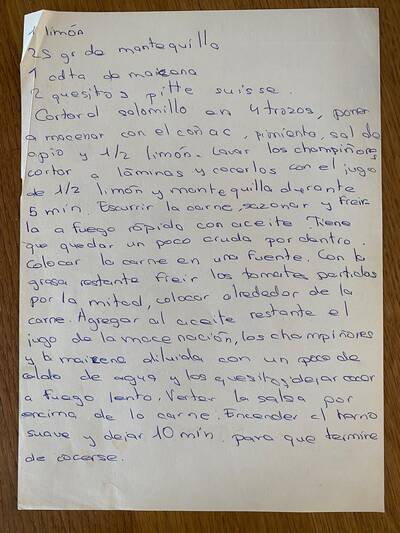 1 limón
25 gr de mantequilla
1 cdta de maizena
2 quesitos pitte suisse.
Cortar el solomillo en 4 trozos, poner
a macenar con el coñac, pimiento, sal de
apio y 1/2 limón. Lavar los champiñores
cortar a láminas y cocerlos con el jugo
de 1/2 limón y mantequilla durante
5 min. Escurrir la carne, sazonar y freir
la a fuego rápido con aceite. Tiene
que quedar un poco cruda por dentro.
Colocar la carne en una fuente. Con la
grasa restante freir los tomates partidos
por la mitad, colocar alrededor de la
carne. Agregar al aceite restante el
jugo de la macenación, los champiñores
y la maizena diluida con un poco de
caldo de agua y los quesitos, dejar cocer
a fuego lento. Verter la salsa por
encima de la carne. Encender el horno
suave y dejar 10 min. para que termine
de cocerse.